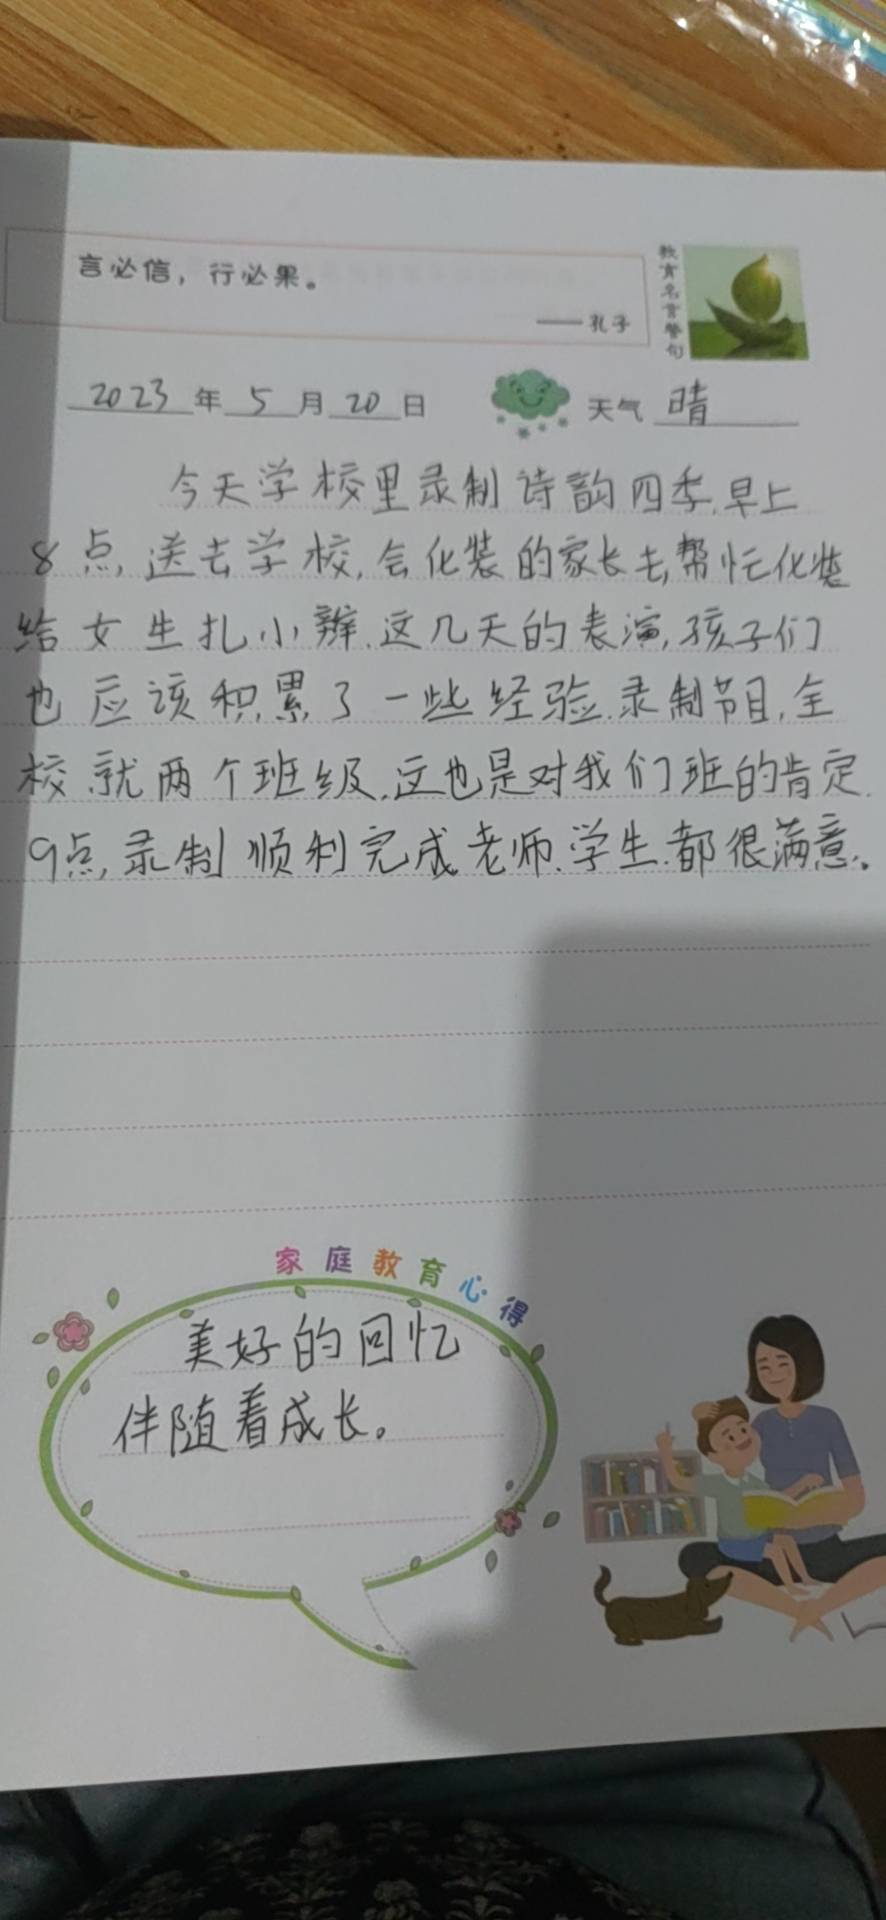 言必信，行必果。
——孔子
教育名言警句
2023年5月20日 天气 晴
今天学校里录制诗韵四季,早上
8点,送去学校,会化装的家长去,帮忙化装
给女生扎小辫,这几天的表演,孩子们
也应该积累了一些经验.录制节目,全
校就两个班级,这也是对我们班的肯定.
9点,录制顺利完成,老师.学生.都很满意。
家庭教育心得
美好的回忆
伴随着成长。